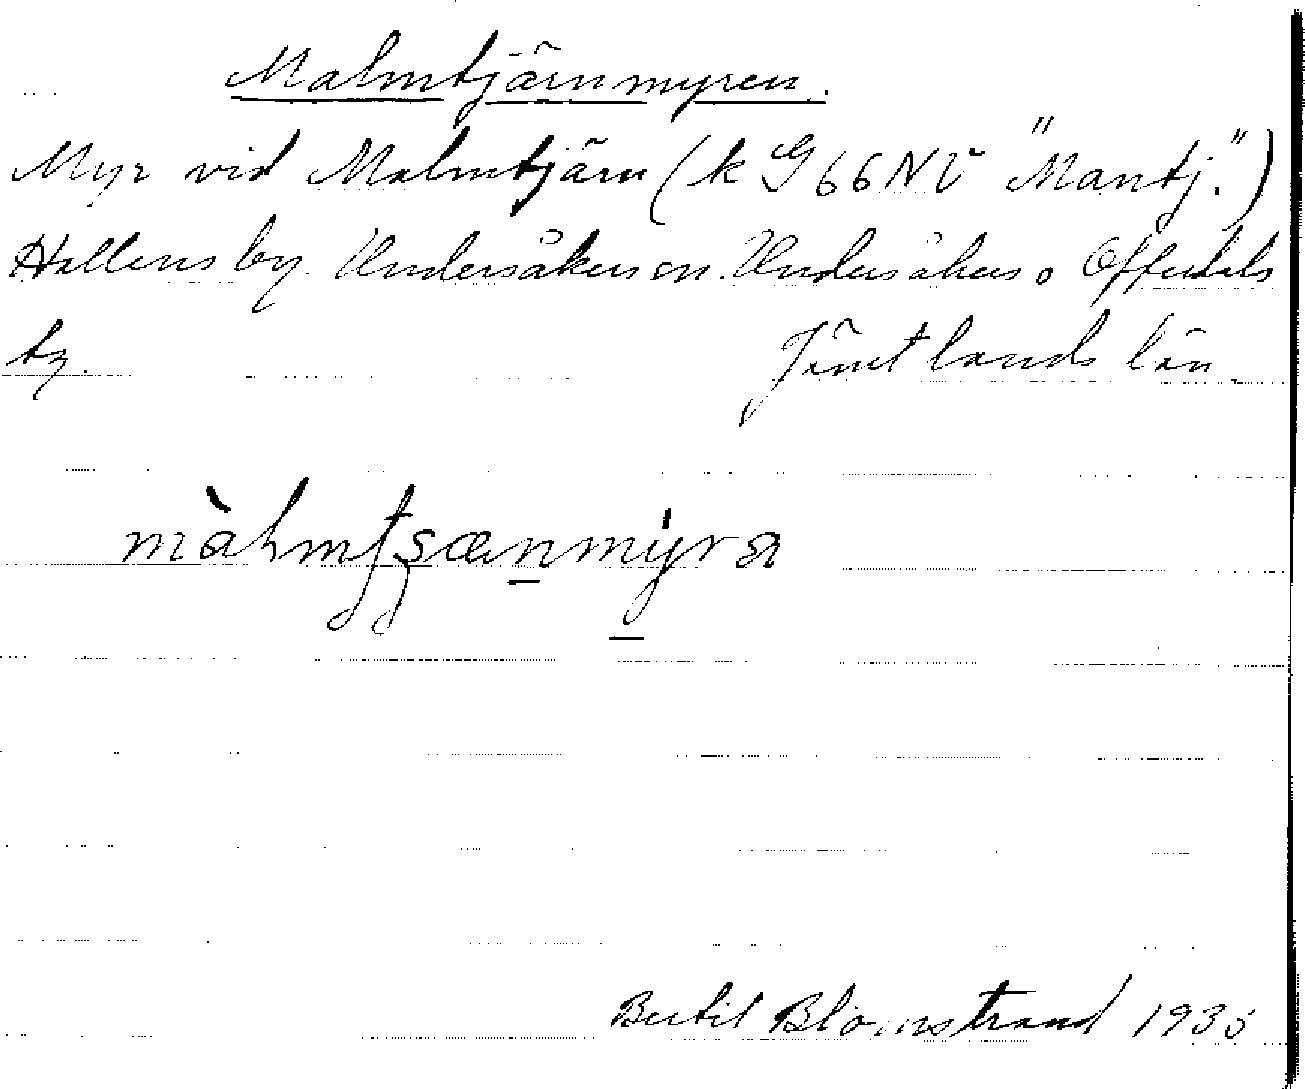 Malmtjärnmyren.
Myr vid Malmtjärn (k G 66 NV "Mantj.")
Hallens by. Undersåkers sn. Undersåkers o Offerdals
tg. Jämtlands län.
Bertil Blomstrand 1935